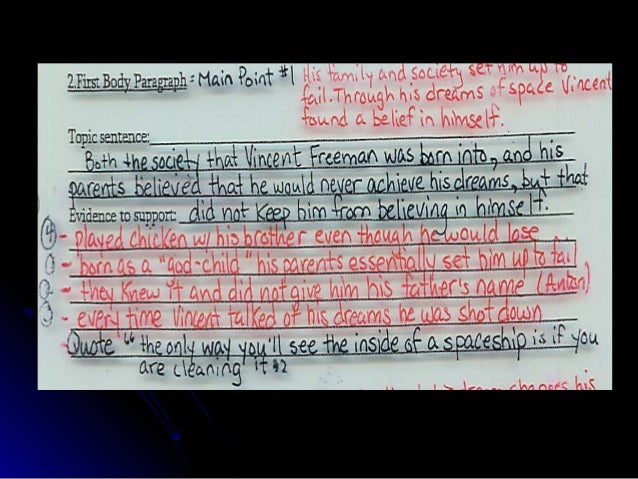 2.First Body Paragraph = Main Point #1 His family and society set him up to
fail. Through his dreams of space Vincent
found a belief in himself.
Topic sentence:
Both the society that Vincent Freeman was born into, and his
parents believed that he would never achieve his dreams, but that
Evidence to support: did not keep him from believing in himself.
4 - played chicken w/ his brother even though he would lose
1 - born as a "god-child" his parents essentially set him up to fail
2 - they knew it and did not give him his father's name (Anton)
3 - every time Vincent talked of his dreams he was shot down
Quote " the only way you'll see the inside of a spaceship is if you
are cleaning it "
dream changes his